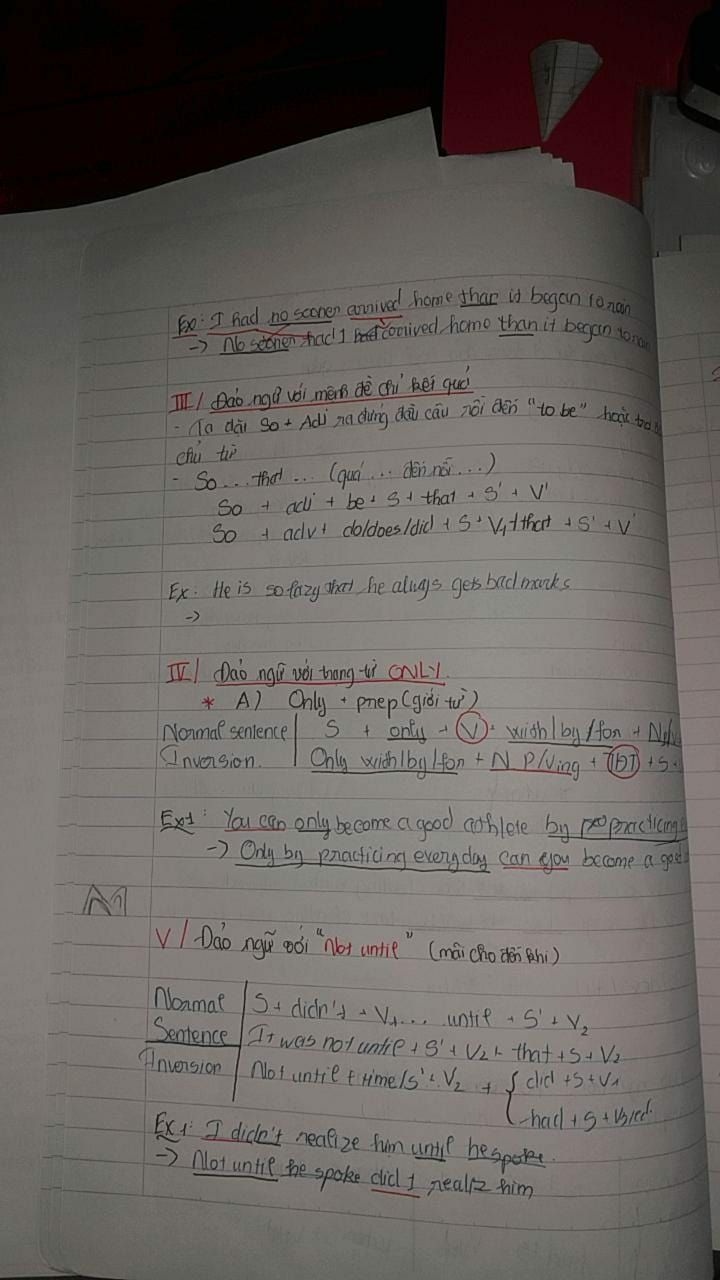 Ex: I had no sooner arrived home than it began to rain
-> No sooner had I arrived home than it began to rain
III/ Đảo ngữ với mệnh đề chỉ kết quả
- Ta đặt So + Adj ra đứng đầu câu rồi đến "to be" hoặc trợ
chủ từ
- So ... that ... (quá ... đến nỗi ...)
So + adj + be + S + that + S' + V'
So + adv + do/does/did + S + V1 + that + S' + V'
Ex: He is so lazy that he always gets bad marks
->
IV/ Đảo ngữ với trạng từ ONLY.
* A) Only + prep (giới từ)
Normal sentence | S + only + V + with/by/for + N
Inversion. | Only with/by/for + N P/Ving + TĐT + S.
Ex1: You can only become a good athlete by practicing
-> Only by practicing everyday can you become a good
V/ Đảo ngữ với "Not until" (mãi cho đến khi)
Normal | S + didn't + V1 ... until + S' + V2
Sentence | It was not until + S' + V2 + that + S + V2
Inversion | Not until + time/S' + V2 + { did + S + V1
had + S + V3/ed.
Ex1: I didn't realize him until he spoke.
-> Not until he spoke did I realiz him